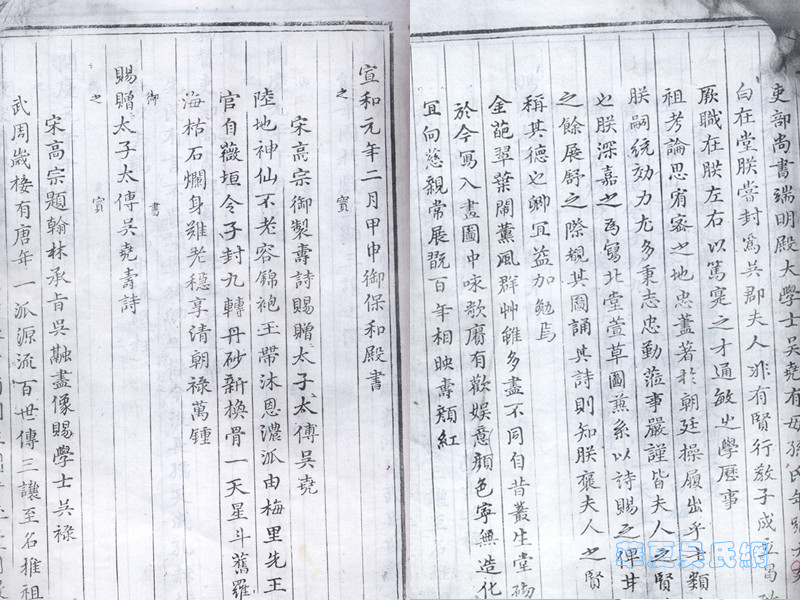 吏部尚書端明殿大學士吳堯有母孫氏年
白在堂朕嘗封爲吳郡夫人非有賢行教子成立曷
厥職在朕左右以篤寔之才通敏之學歷事
祖考論思宥密之地忠藎著於朝廷操履出乎士類
朕嗣統効力尤多秉志忠勤蒞事嚴謹皆夫人之賢
也朕深嘉之爲寫北堂萱草圖兼系以詩賜之俾其
之餘展舒之際覩其圖誦其詩則知朕褒夫人之賢
稱其德也卿宜益加勉焉
金葩翠葉鬧薰風群艸雖多盡不同自昔叢生堂砌
於今寫入畫圖中咏歌賡有歡娛意顏色寧無造化
宜向慈親常展翫百年相映壽顏紅
宣和元年二月甲申御保和殿書
之寶
宋高宗御製壽詩賜贈太子太傅吳堯
陸地神仙不老容錦袍玉帶沐恩濃派由梅里先王
官自薇垣令子封九轉丹砂新換骨一天星斗舊羅
海枯石爛身難老穩享清朝祿萬鍾
御書
賜贈太子太傅吳堯壽詩
之寶
宋高宗題翰林承旨吳融畫像賜學士吳祿
武周歲棲有唐年一派源流百世傳三讓至名推祖